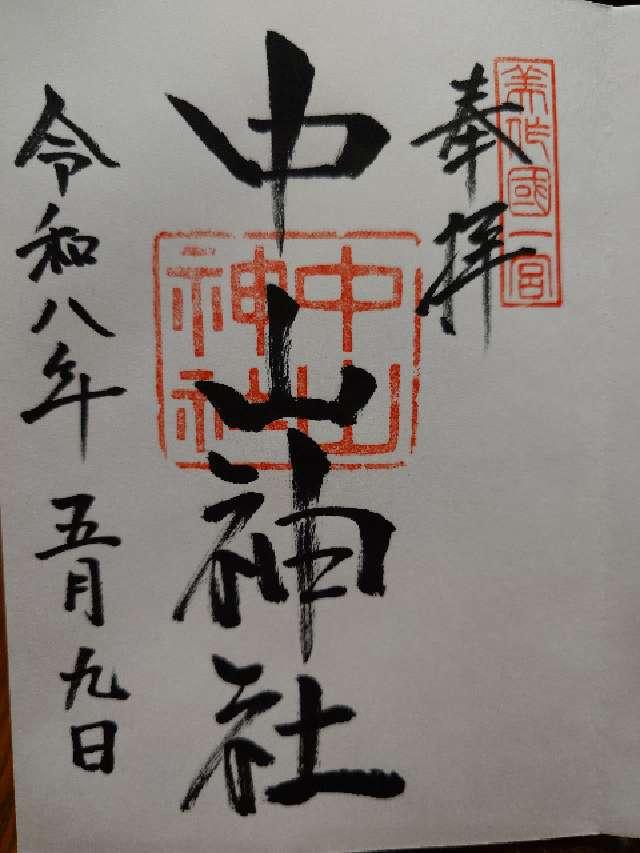 美作國一宮
奉拝
中山神社
中山
神社
令和八年五月九日